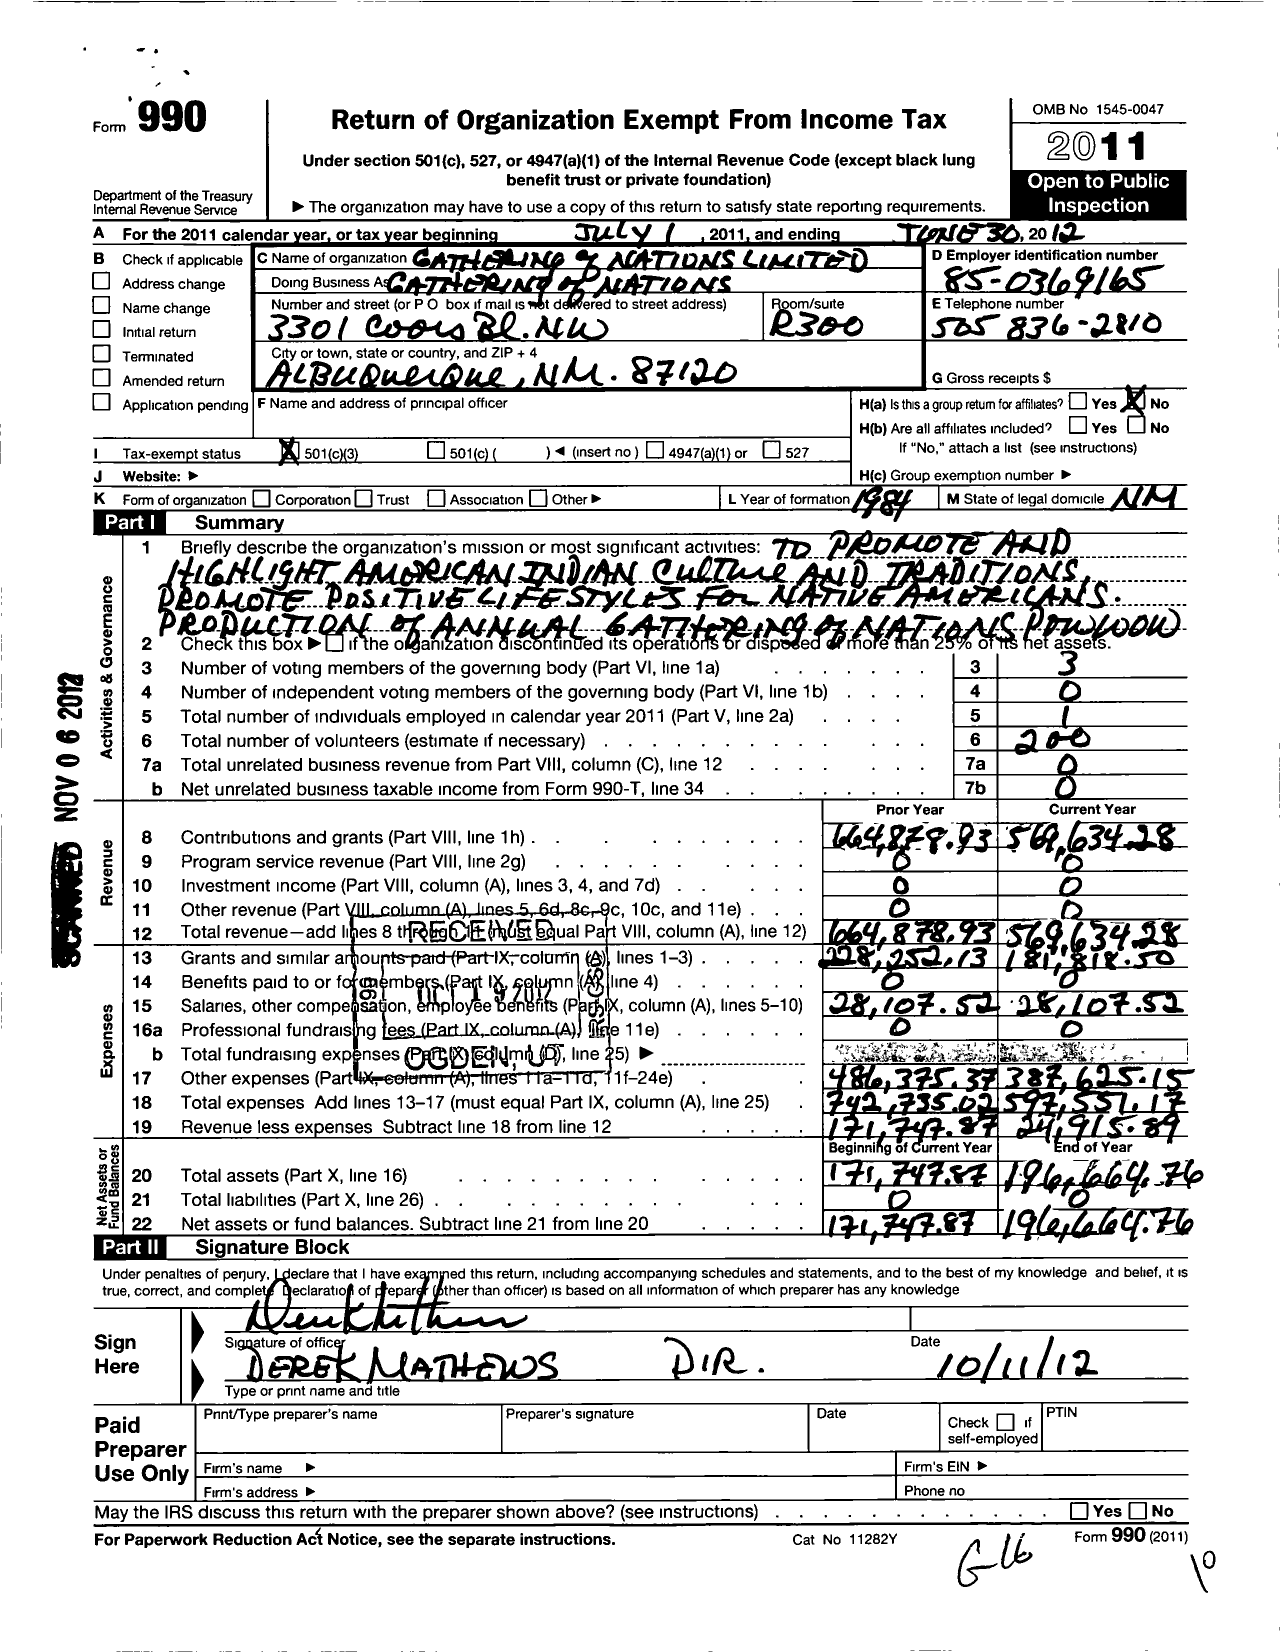 Form 990
Return of Organization Exempt From Income Tax
OMB No 1545-0047
2011
Under section 501(c), 527, or 4947(a)(1) of the Internal Revenue Code (except black lung
benefit trust or private foundation)
Open to Public
Inspection
Department of the Treasury
Internal Revenue Service
► The organization may have to use a copy of this return to satisfy state reporting requirements.
A For the 2011 calendar year, or tax year beginning JULY 1 , 2011, and ending JUNE 30, 2012
B Check if applicable
Address change
Name change
Initial return
Terminated
Amended return
Application pending
C Name of organization GATHERING of NATIONS LIMITED
Doing Business As GATHERING of NATIONS
Number and street (or P O box if mail is not delivered to street address) Room/suite
3301 Coors Bl. NW R300
City or town, state or country, and ZIP + 4
ALBUquerque, NM. 87120
D Employer identification number
85-0369165
E Telephone number
505 836-2810
G Gross receipts $
F Name and address of principal officer
H(a) Is this a group return for affiliates? Yes X No
H(b) Are all affiliates included? Yes No
If "No," attach a list (see instructions)
H(c) Group exemption number ►
I Tax-exempt status X 501(c)(3) 501(c) ( ) ◄ (insert no ) 4947(a)(1) or 527
J Website: ►
K Form of organization Corporation Trust Association Other ► L Year of formation 1984 M State of legal domicile NM
Part I Summary
1 Briefly describe the organization's mission or most significant activities: TO PROMOTE AND
HIGHLIGHT AMERICAN INDIAN CULTURE AND TRADITIONS,
PROMOTE POSITIVE LIFESTYLES FOR NATIVE AMERICANS.
PRODUCTION of ANNUAL GATHERING of NATIONS POWWOW
2 Check this box ► if the organization discontinued its operations or disposed of more than 25% of its net assets.
3 Number of voting members of the governing body (Part VI, line 1a) 3 3
4 Number of independent voting members of the governing body (Part VI, line 1b) 4 0
5 Total number of individuals employed in calendar year 2011 (Part V, line 2a) 5 1
6 Total number of volunteers (estimate if necessary) 6 200
7a Total unrelated business revenue from Part VIII, column (C), line 12 7a 0
b Net unrelated business taxable income from Form 990-T, line 34 7b 0
Activities & Governance
Prior Year Current Year
8 Contributions and grants (Part VIII, line 1h) 664,878.93 569,634.28
9 Program service revenue (Part VIII, line 2g) 0 0
10 Investment income (Part VIII, column (A), lines 3, 4, and 7d) 0 0
11 Other revenue (Part VIII, column (A), lines 5, 6d, 8c, 9c, 10c, and 11e) 0 0
12 Total revenue—add lines 8 through 11 (must equal Part VIII, column (A), line 12) 664,878.93 569,634.28
Revenue
13 Grants and similar amounts paid (Part IX, column (A), lines 1–3) 228,252.13 181,818.50
14 Benefits paid to or for members (Part IX, column (A), line 4) 0 0
15 Salaries, other compensation, employee benefits (Part IX, column (A), lines 5–10) 28,107.52 28,107.52
16a Professional fundraising fees (Part IX, column (A), line 11e) 0 0
b Total fundraising expenses (Part IX, column (D), line 25) ►
17 Other expenses (Part IX, column (A), lines 11a–11d, 11f–24e) 486,375.37 387,625.15
18 Total expenses Add lines 13–17 (must equal Part IX, column (A), line 25) 742,735.02 597,551.17
19 Revenue less expenses Subtract line 18 from line 12 171,747.87 24,915.89
Expenses
RECEIVED
OCT 19 2012
OGDEN, UT
SCANNED NOV 06 2012
Beginning of Current Year End of Year
20 Total assets (Part X, line 16) 171,747.87 196,664.76
21 Total liabilities (Part X, line 26) 0 0
22 Net assets or fund balances. Subtract line 21 from line 20 171,747.87 196,664.76
Net Assets or
Fund Balances
Part II Signature Block
Under penalties of perjury, I declare that I have examined this return, including accompanying schedules and statements, and to the best of my knowledge and belief, it is
true, correct, and complete Declaration of preparer (other than officer) is based on all information of which preparer has any knowledge
Sign
Here
Signature of officer Date
DEREK MATHEWS DIR. 10/11/12
Type or print name and title
Paid
Preparer
Use Only
Print/Type preparer's name Preparer's signature Date Check if
self-employed PTIN
Firm's name ► Firm's EIN ►
Firm's address ► Phone no
May the IRS discuss this return with the preparer shown above? (see instructions) Yes No
For Paperwork Reduction Act Notice, see the separate instructions. Cat No 11282Y Form 990 (2011)
G-16
10